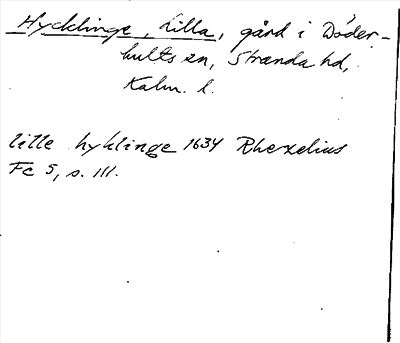 Hycklinge, Lilla, gård i Döder-
hults sn, Stranda hd,
Kalm. l.
lille hyklinge 1634 Rhezelius
Fc 5, s. 111.